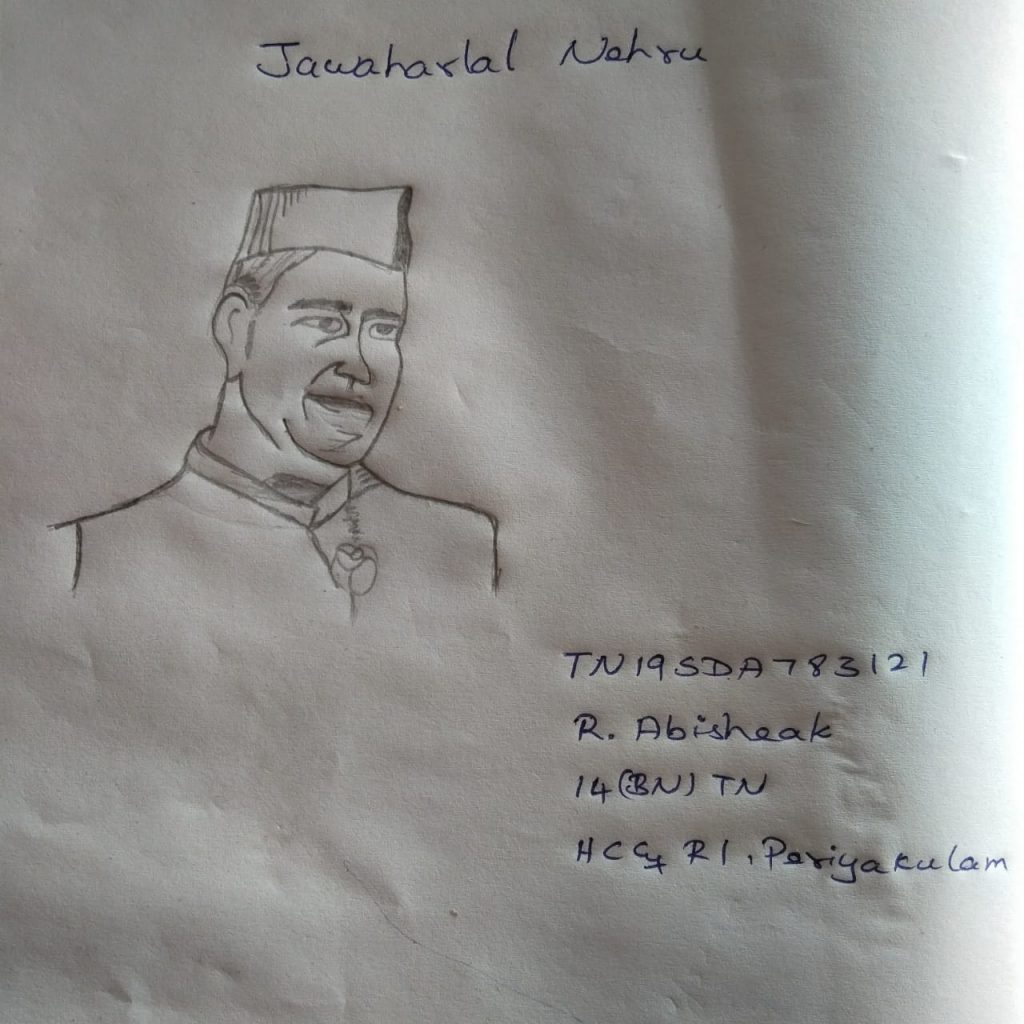 Jawaharlal Nehru
TN19SDA783121
R. Abisheak
14(BN) TN
HC & RI, Periyakulam